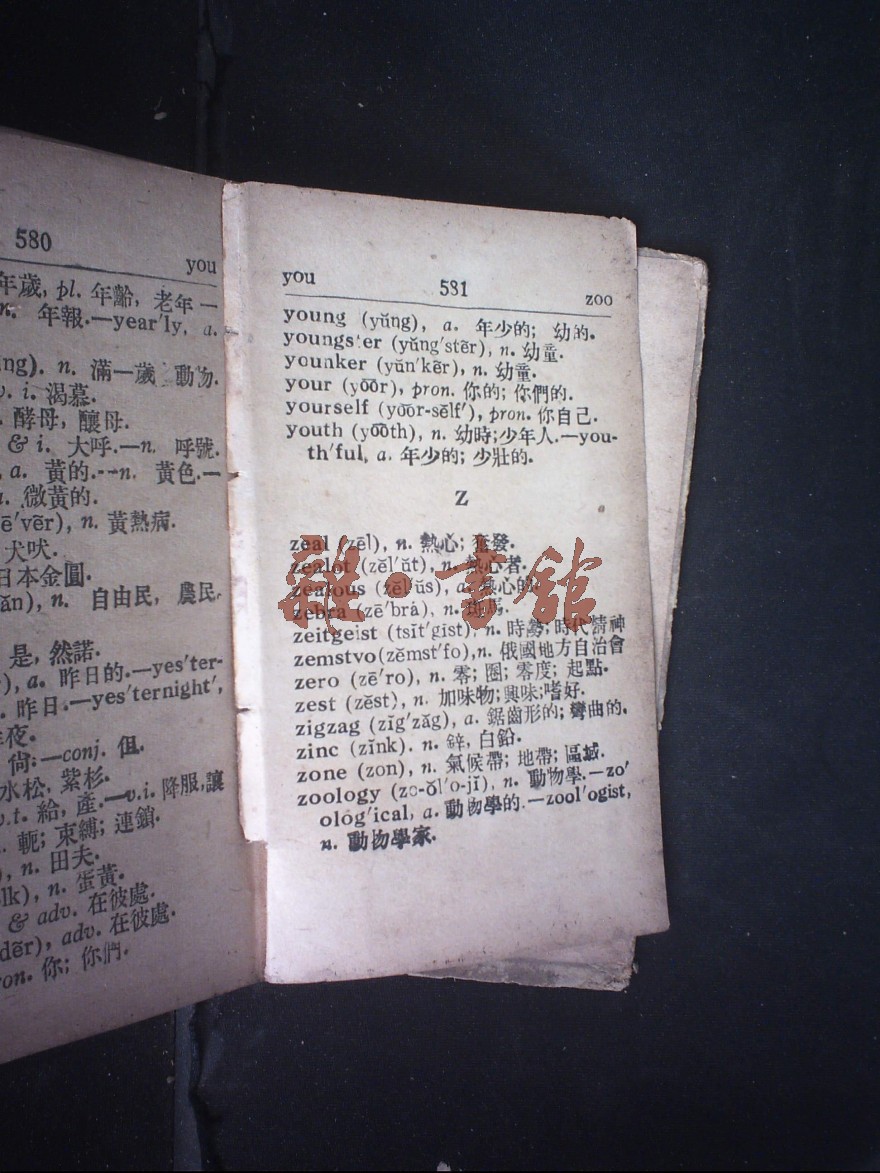 580
you
年歲, pl. 年齡, 老年 —
n. 年報.—year'ly, a.
ing). n. 滿一歲 動物.
v. i. 渴慕.
酵母, 釀母.
& i. 大呼.—n. 呼號.
a. 黃的.—n. 黃色.—
a. 微黃的.
ē'vẽr), n. 黃熱病.
犬吠.
日本金圓.
ăn), n. 自由民, 農民.
是, 然諾.
), a. 昨日的.—yes'ter-
. 昨日.—yes'ternight',
夜.
尙:—conj. 但.
水松, 紫杉.
v.t. 給, 產.—v.i. 降服,讓
. 軛; 束縛; 連鎖.
), n. 田夫.
lk), n. 蛋黃.
& adv. 在彼處.
dẽr), adv. 在彼處.
ron. 你; 你們.
you 581 zoo
young (yŭng), a. 年少的; 幼的.
youngster (yŭng'stẽr), n. 幼童.
younker (yŭn'kẽr), n. 幼童.
your (yōōr), pron. 你的; 你們的.
yourself (yōōr-sĕlf'), pron. 你自己.
youth (yōōth), n. 幼時;少年人.—you-
th'ful, a. 年少的; 少壯的.
Z
zeal (zēl), n. 熱心; 奮發.
zealot (zĕl'ŭt), n. 熱心者.
zealous (zĕl'ŭs), a. 熱心的.
zebra (zē'brȧ), n.
zeitgeist (tsīt'gīst), n. 時勢; 時代精神
zemstvo(zĕmst'fo), n. 俄國地方自治會
zero (zē'ro), n. 零; 圈; 零度; 起點.
zest (zĕst), n. 加味物; 興味;嗜好.
zigzag (zĭg'zăg), a. 鋸齒形的; 彎曲的.
zinc (zĭnk). n. 鋅, 白鉛.
zone (zon), n. 氣候帶; 地帶; 區域.
zoology (zo-ŏl'o-jĭ), n. 動物學.—zo'
olog'ical, a. 動物學的.—zool'ogist,
n. 動物學家.
雜·書館